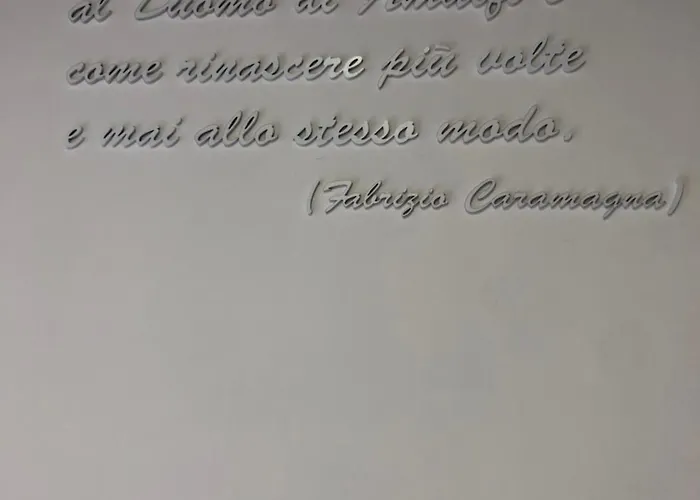 al Duomo di Amalfi è
come rinascere più volte
e mai allo stesso modo.
(Fabrizio Caramagna)